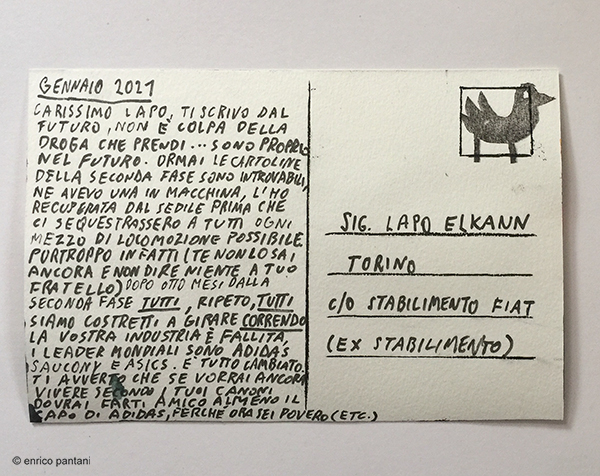 GENNAIO 2021
CARISSIMO LAPO, TI SCRIVO DAL
FUTURO, NON È COLPA DELLA
DROGA CHE PRENDI... SONO PROPRIO
NEL FUTURO. ORMAI LE CARTOLINE
DELLA SECONDA FASE SONO INTROVABILI,
NE AVEVO UNA IN MACCHINA, L'HO
RECUPERATA DAL SEDILE PRIMA CHE
CI SEQUESTRASSERO A TUTTI OGNI
MEZZO DI LOCOMOZIONE POSSIBILE.
PURTROPPO INFATTI (TE NON LO SAI
ANCORA E NON DIRE NIENTE A TUO
FRATELLO) DOPO OTTO MESI DALLA
SECONDA FASE TUTTI, RIPETO, TUTTI
SIAMO COSTRETTI A GIRARE CORRENDO
LA VOSTRA INDUSTRIA È FALLITA,
I LEADER MONDIALI SONO ADIDAS
SAUCONY E ASICS. È TUTTO CAMBIATO.
TI AVVERTO CHE SE VORRAI ANCORA
VIVERE SECONDO I TUOI CANONI
DOVRAI FARTI AMICO ALMENO IL
CAPO DI ADIDAS, PERCHE ORA SEI POVERO (ETC.)
SIG. LAPO ELKANN
TORINO
C/O STABILIMENTO FIAT
(EX STABILIMENTO)
© enrico pantani